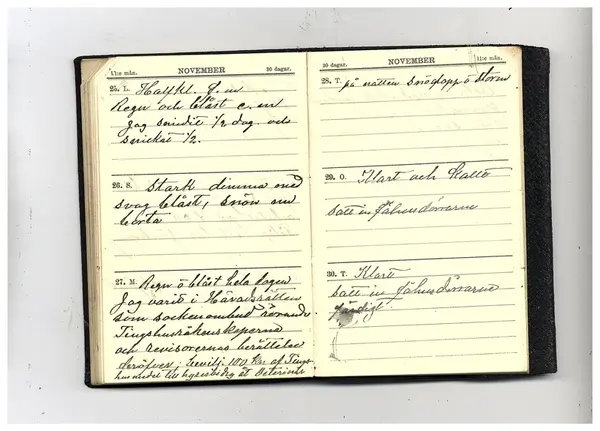 11:e mån. NOVEMBER 30 dagar.
25. L. Halfkl. f. m
Regn och blåst e. m
Jag smidit ½ dag och
snickat ½.
26. S. Stark dimma med
svag blåst, snön nu
borta
27. M. Regn o blåst hela dagen
Jag varit i Häradsrätten
som sockenombud rörande
Tingshusräkenskaperna
och revisorernas berättelse
deröfver, bevilj. 100 Kr. af Tings-
husmedel till hyresbidrag åt
30 dagar. NOVEMBER 11:e mån.
28. T. på natten snöglopp o storm
29. O. Klart och kallt
satt in fähusdörrarne
30. T. Klart
satt in fähusdörrarne
färdigt